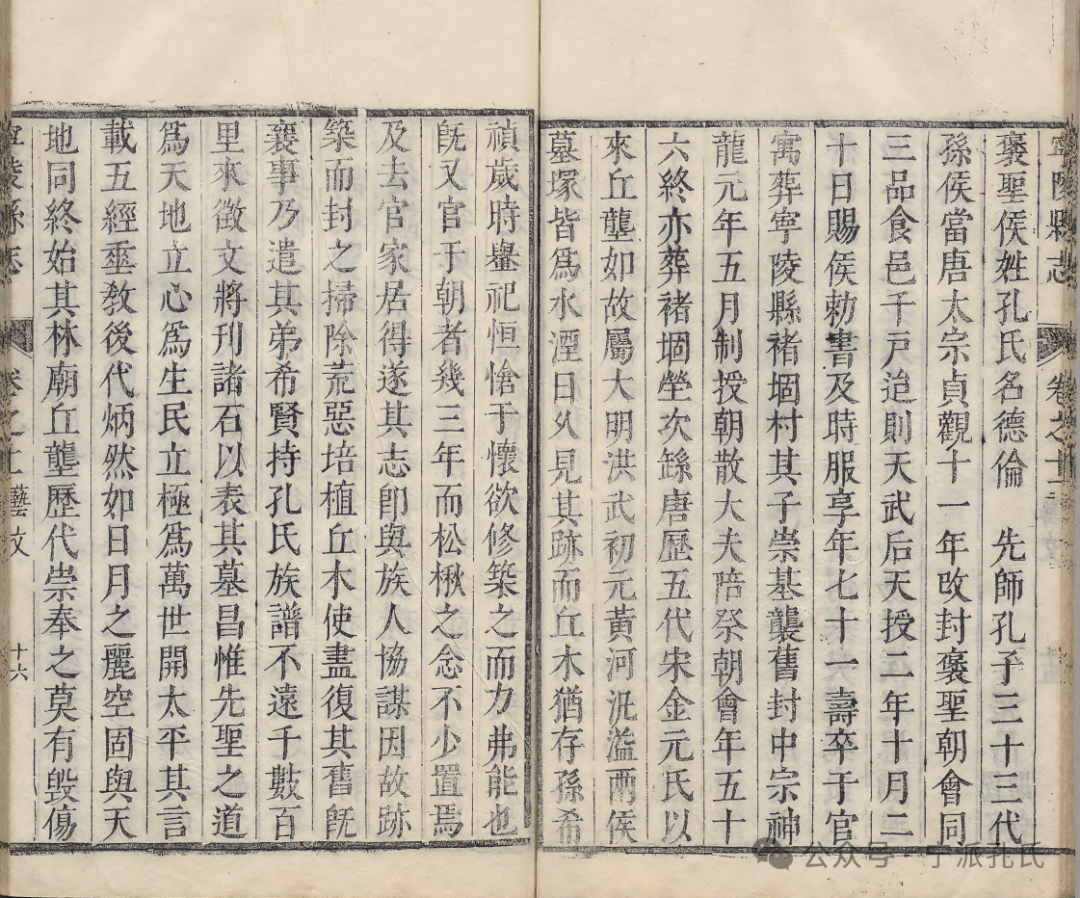 寧陵縣志 卷之十
褒聖侯姓孔氏名德倫　先師孔子三十三代
孫侯當唐太宗貞觀十一年改封褒聖朝會同
三品食邑千戸迨則天武后天授二年十月二
十日賜侯勅書及時服享年七十一壽卒于官
寓葬寧陵縣禇堌村其子崇基襲舊封中宗神
龍元年五月制授朝散大夫陪祭朝會年五十
六終亦葬禇堌塋次繇唐歷五代宋金元氏以
來丘壟如故屬大明洪武初元黃河汎溢兩侯
墓塚皆爲水湮日久見其跡而丘木猶存孫希
禎歲時舉祀恒愴于懷欲修築之而力弗能也
旣又官于朝者幾三年而松楸之念不少置焉
及去官家居得遂其志卽與族人協謀因故跡
築而封之掃除荒惡培植丘木使盡復其舊旣
襄事乃遣其弟希賢持孔氏族譜不遠千數百
里來徵文將刊諸石以表其墓昌惟先聖之道
爲天地立心爲生民立極爲萬世開太平其言
載五經垂敎後代炳然如日月之麗空固與天
地同終始其林廟丘壟歷代崇奉之莫有毀傷
寧陵縣志 卷之十 藝文 十六
公众号 · 宁派孔氏